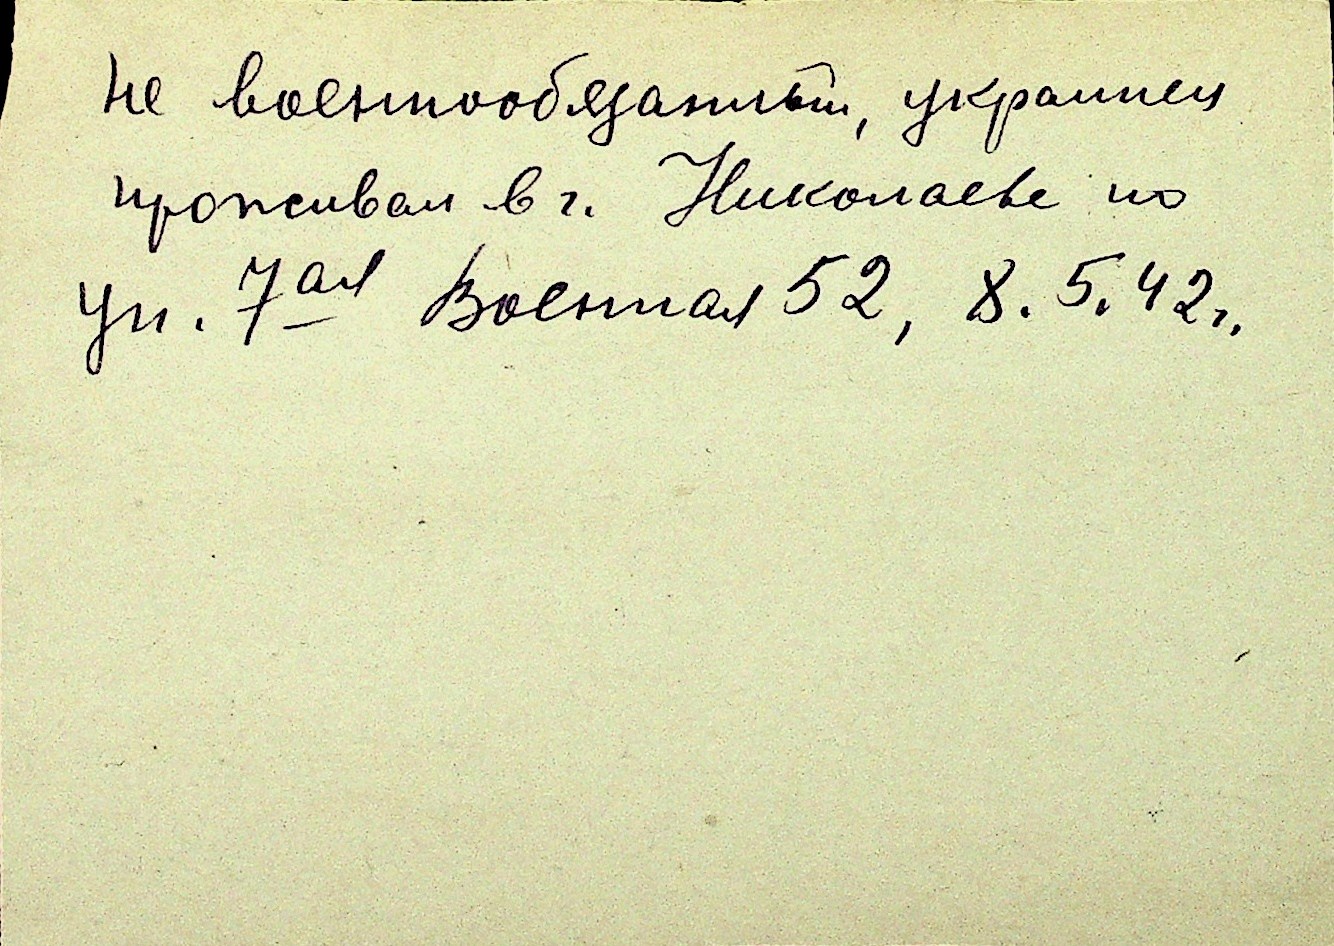 не военнообязанный, украинец
проживал в г. Николаеве по
ул. 7ая Военная 52, 8.5.42г.